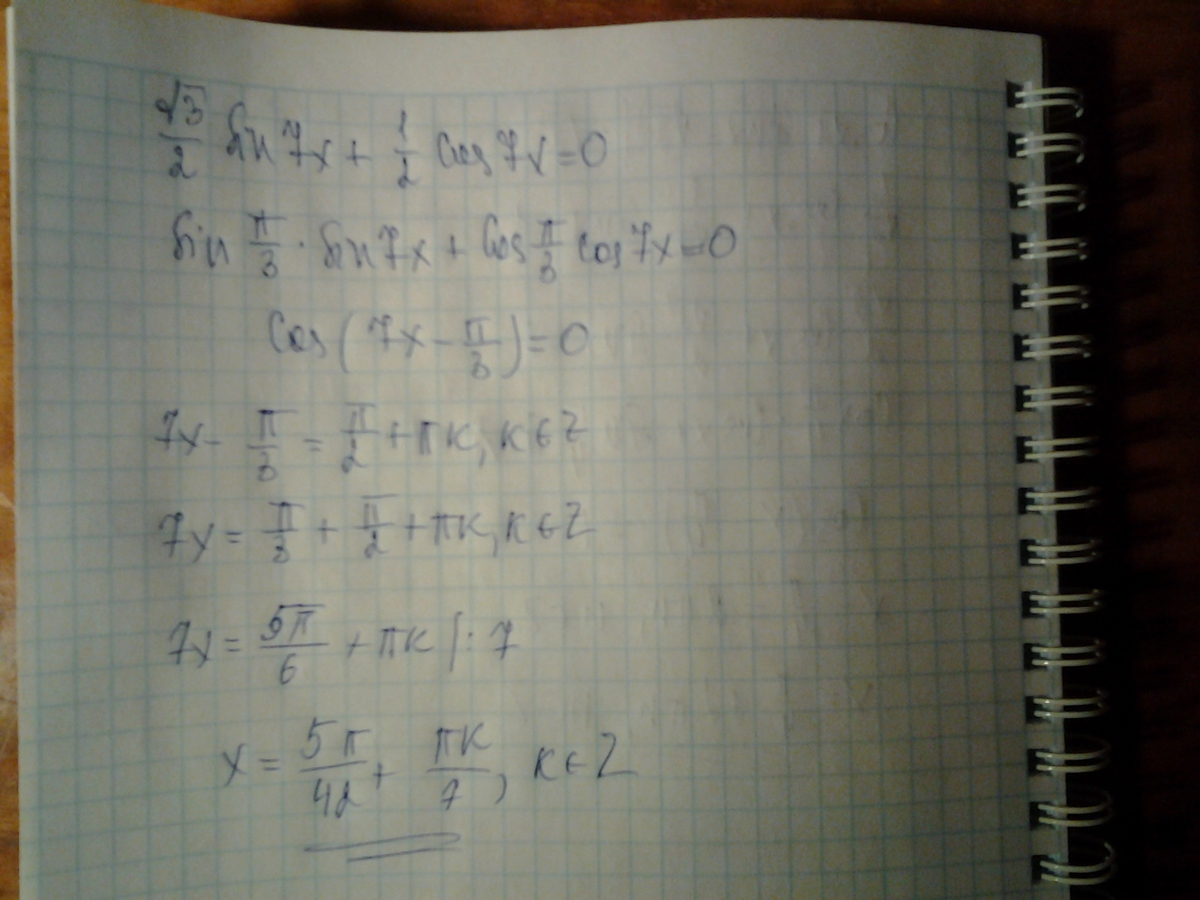 √3/2 sin 7x + 1/2 cos 7x = 0
sin π/3 · sin 7x + cos π/3 cos 7x = 0
cos(7x - π/3) = 0
7x - π/3 = π/2 + πk, k ∈ Z
7x = π/3 + π/2 + πk, k ∈ Z
7x = 5π/6 + πk |: 7
x = 5π/42 + πk/7, k ∈ Z